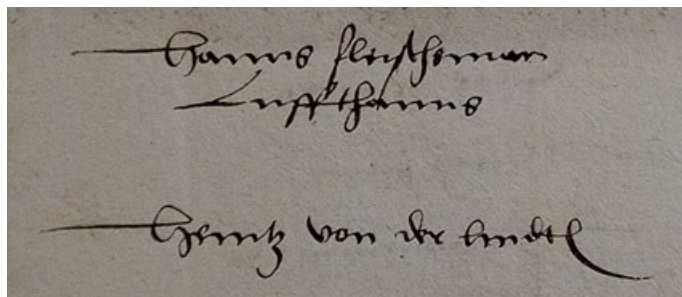 Hanns fleischman
Luffthanns
Heintz von der lindt